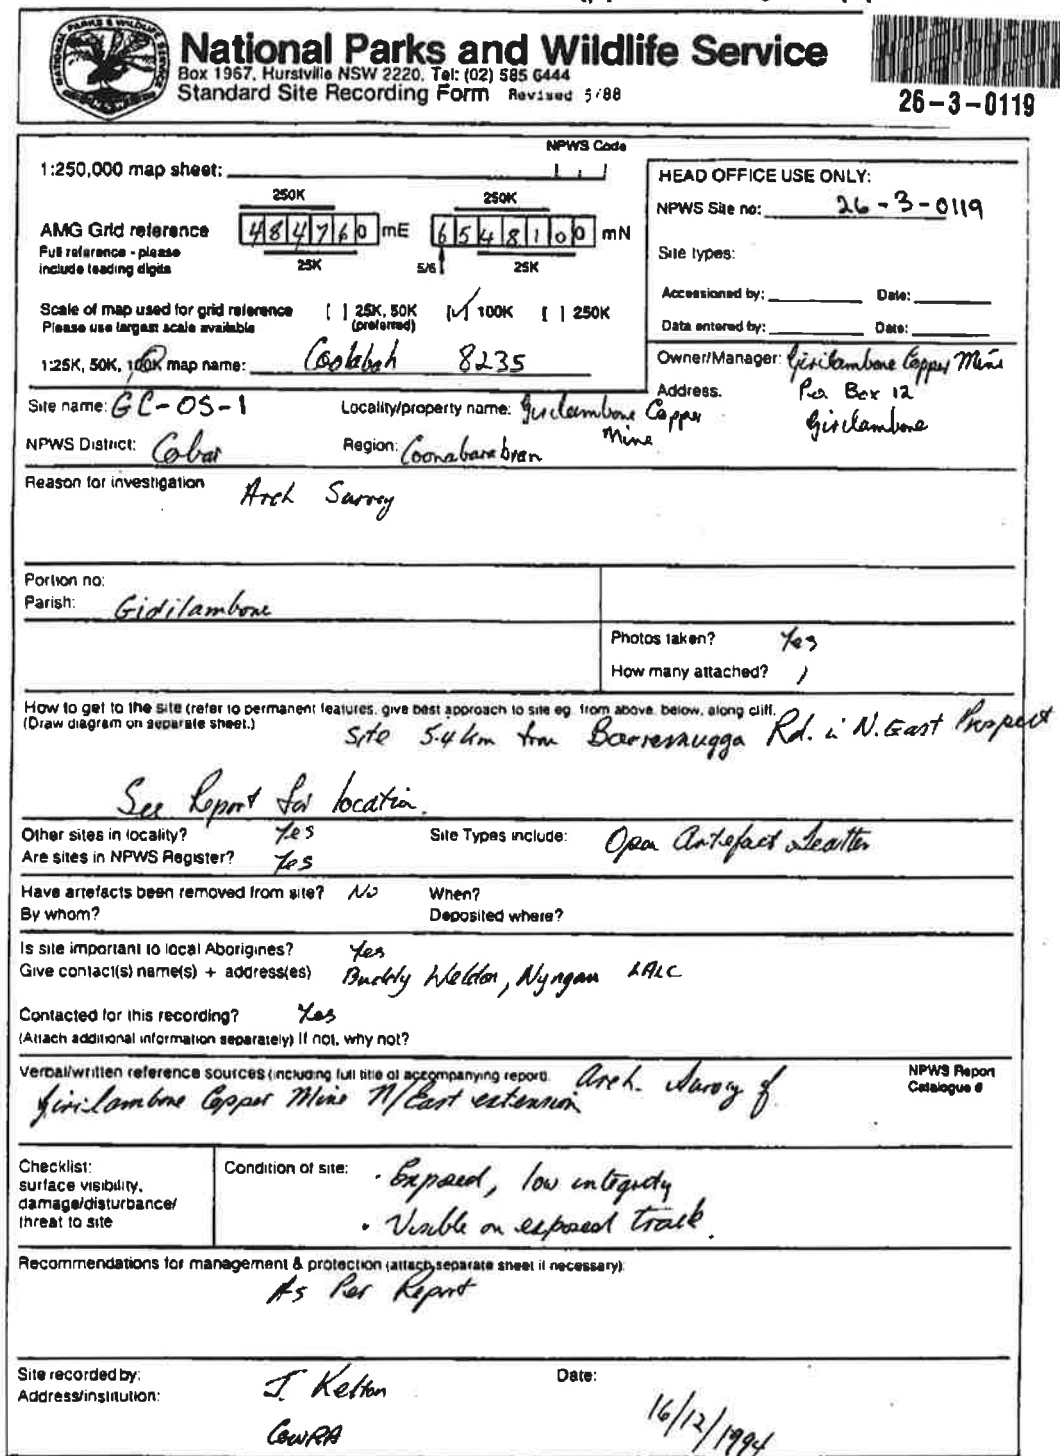 National Parks and Wildlife Service
Box 1967, Hurstville NSW 2220, Tel: (02) 585 6444
Standard Site Recording Form Revised 5/88
26-3-0119
NPWS Code
1:250,000 map sheet:
250K 250K
AMG Grid reference 484760 mE 6548100 mN
Full reference - please
include leading digits
25K 5/6 25K
Scale of map used for grid reference [ ] 25K, 50K [✓] 100K [ ] 250K
Please use largest scale available (preferred)
1:25K, 50K, 100K map name: Coolabah 8235
HEAD OFFICE USE ONLY:
NPWS Site no: 26-3-0119
Site types:
Accessioned by: Date:
Data entered by: Date:
Owner/Manager: Girilambone Copper Mine
Address. Box 12
Girilambone
Site name: GC-OS-1 Locality/property name: Girilambone Copper
Mine
NPWS District: Cobar Region: Coonabarabran
Reason for investigation Arch Survey
Portion no:
Parish: Gidilambone
Photos taken? Yes
How many attached? 1
How to get to the site (refer to permanent features, give best approach to site eg. from above, below, along cliff.
(Draw diagram on separate sheet.)
Site 5.4 km from Barremugga Rd. in N. East Prospect
See Report for location.
Other sites in locality? Yes Site Types include: Open Artefact Scatter
Are sites in NPWS Register? Yes
Have artefacts been removed from site? No When?
By whom? Deposited where?
Is site important to local Aborigines? Yes
Give contact(s) name(s) + address(es) Buddy Weldon, Nyngan LALC
Contacted for this recording? Yes
(Attach additional information separately) If not, why not?
Verbal/written reference sources (including full title of accompanying report). Arch. Survey of
Girilambone Copper Mine N/East extension
NPWS Report
Catalogue #
Checklist:
surface visibility,
damage/disturbance/
threat to site
Condition of site: · Exposed, low integrity
· Visible on exposed track.
Recommendations for management & protection (attach separate sheet if necessary):
As Per Report
Site recorded by: J. Kelton Date: 16/12/1994
Address/institution: COWRA